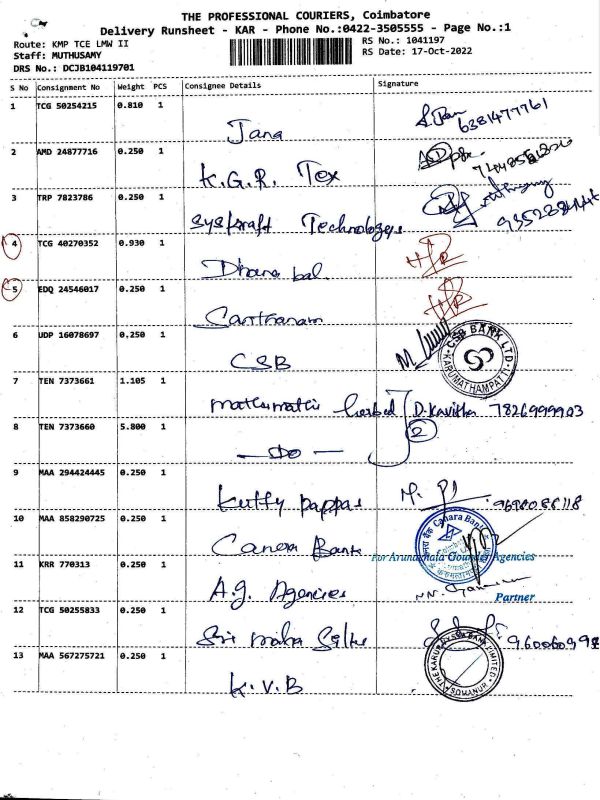 THE PROFESSIONAL COURIERS, Coimbatore
Delivery Runsheet - KAR - Phone No.:0422-3505555 - Page No.:1
Route: KMP TCE LMW II
RS No.: 1041197
Staff: MUTHUSAMY
RS Date: 17-Oct-2022
DRS No.: DCJB104119701
S No Consignment No Weight PCS Consignee Details Signature
1 TCG 50254215 0.810 1
6381477761
Jana
2 AMD 24877716 0.250 1
K.G.R. Tex
3 TRP 7823786 0.250 1
Technologys
4 TCG 40270352 0.930 1
Dhana bal
5 EDQ 24546017 0.250 1
Santhanam
6 UDP 16078697 0.250 1
CSB
CSB BANK LTD.
KARUMATHAMPATTI
7 TEN 7373661 1.105 1
Herbal D.Kavitha 7826999903
8 TEN 7373660 5.800 1
2
— do —
9 MAA 294424445 0.250 1
Kutty pappas
10 MAA 858290725 0.250 1
Canara Bank
Canara Bank
For Arunachala Gounder Agencies
11 KRR 770313 0.250 1
A.G. Agencies
Partner
12 TCG 50255833 0.250 1
Sri maha Silks
13 MAA 567275721 0.250 1
K.V.B
SOMANUR